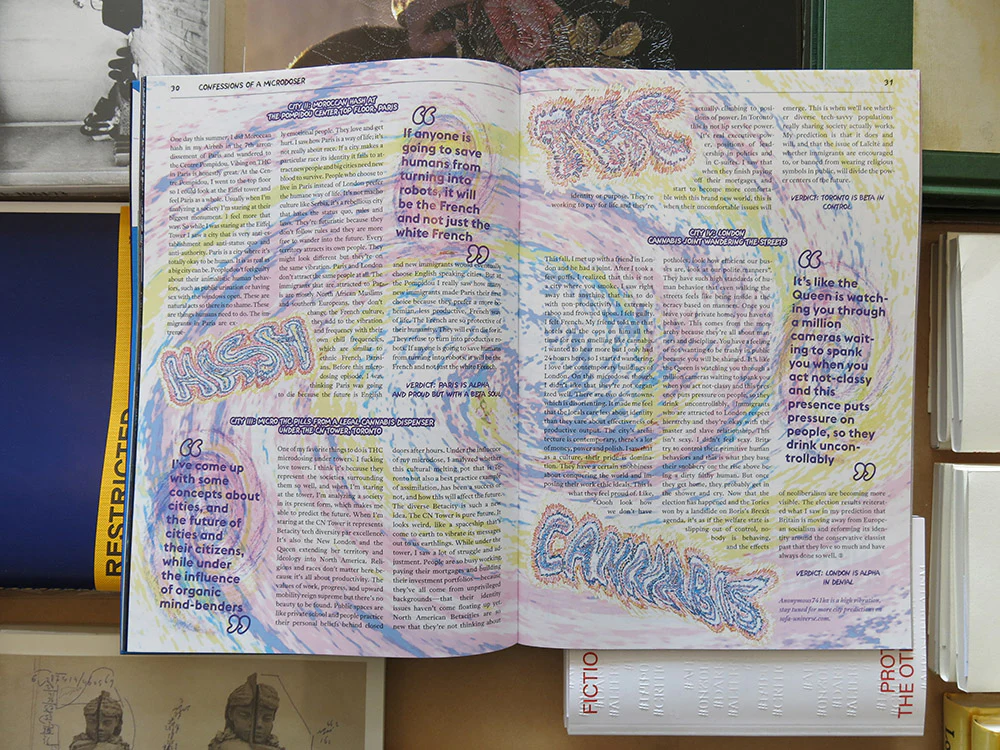 30 CONFESSIONS OF A MICRODOSER
CITY II: MOROCCAN HASH AT
THE POMPIDOU CENTER TOP FLOOR, PARIS
One day this summer, I did Moroccan
hash in my Airbnb in the 7th arron-
dissement of Paris and wandered to
the Centre Pompidou. Vibing on THC
in Paris is honestly great. At the Cen-
tre Pompidou, I went to the top floor
so I could look at the Eiffel tower and
feel Paris as a whole. Usually when I'm
analyzing a society I'm staring at their
biggest monument. I feel more that
way. So while I was staring at the Eiffel
Tower I saw a city that is very anti-es-
tablishment and anti-status quo and
anti-authority. Paris is a city which is
totally okay to be human. It is as real as
a big city can be. People don't feel guilty
about their animalistic human behav-
iors, such as public urination or having
sex with the windows open. These are
natural acts so there is no shame. These
are things humans need to do. The im-
migrants in Paris are ex-
tremely emotional people. They love and get
hurt. I saw how Paris is a way of life; it's
not really about race. If a city makes a
particular race its identity it fails to at-
tract new people and big cities need new
blood to survive. People who choose to
live in Paris instead of London prefer
the human way of life. It's not macho
culture like Serbia, it's a rebellious city
that hates the status quo, rules and
laws. They're futuristic because they
don't follow rules and they are more
free to wander into the future. Every
territory attracts its own people. They
might look different but they're on
the same vibration. Paris and London
don't attract the same people at all. The
immigrants that are attracted to Par-
is are mostly North African Muslims
and Southern Europeans, they don't
change the French culture,
they add to the vibration
and frequency with their
own chill frequencies,
which are similar to
ethnic French Paris-
ians. Before this micro-
dosing episode, I was
thinking Paris was going
to die because the future is English
If anyone is
going to save
humans from
turning into
robots, it will
be the French
and not just the
white French
and new immigrants would actually
choose English speaking cities. But at
the Pompidou I really saw how many
new immigrants made Paris their first
choice because they prefer a more bo-
hemian, less productive, French way
of life. The French are so protective of
their humanity. They will even die for it.
They refuse to turn into productive ro-
bots. If anyone is going to save humans
from turning into robots, it will be the
French and not just the white French.
VERDICT: PARIS IS ALPHA
AND PROUD BUT WITH A BETA SOUL
HASH
CITY III: MICRO THC PILLS FROM A LEGAL CANNABIS DISPENSER
UNDER THE CN TOWER, TORONTO
I've come up
with some
concepts about
cities, and
the future of
cities and
their citizens,
while under
the influence
of organic
mind-benders
One of my favorite things to do is THC
microdosing under towers. I fucking
love towers. I think it's because they
represent the societies surrounding
them so well, and when I'm staring
at the tower, I'm analyzing a society
in its present form, which makes me
able to predict the future. When I'm
staring at the CN Tower it represents
Betacity tech diversity par excellence.
It's also the New London and the
Queen extending her territory and
ideology into North America. Reli-
gions and races don't matter here be-
cause it's all about productivity. The
values of work, progress, and upward
mobility reign supreme but there's no
beauty to be found. Public spaces are
like private school and people practice
their personal beliefs behind closed
doors after hours. Under the influence
of my microdose, I analyzed why
this cultural melting pot that is To-
ronto but also a best practice example
of assimilation, has been a success or
not, and how this will affect the future.
The diverse Betacity is such a new
idea. The CN Tower is pure future. It
looks weird, like a spaceship that's
come to earth to vibrate its messages
out to us earthlings. While under the
tower, I saw a lot of struggle and ad-
justment. People are so busy working,
paying their mortgages and building
their investment portfolios—because
they've all come from unprivileged
backgrounds—that their identity
issues haven't come floating up yet.
North American Betacities are so
new that they're not thinking about
31
THC
identity or purpose. They're
working to pay for life and they're
actually climbing to posi-
tions of power. In Toronto
this is not lip service power.
It's real executive pow-
er, positions of lead-
ership in politics and
in C-suites. I saw that
when they finish paying
their mortgages and
start to become more comforta-
ble with this brand new world, this is
when their uncomfortable issues will
emerge. This is when we'll see wheth-
er diverse tech-savvy populations
really sharing society actually works.
My prediction is that it does and
will, and that the issue of Laïcité and
whether immigrants are encouraged
to, or banned from wearing religious
symbols in public, will divide the pow-
er centers of the future.
VERDICT: TORONTO IS BETA IN
CONTROL
CITY IV: LONDON
CANNABIS JOINT WANDERING THE STREETS
This fall, I met up with a friend in Lon-
don and we had a joint. After I took a
few puffs, I realized that this is not
a city where you smoke. I saw right
away that anything that has to do
with non productivity is extremely
taboo and frowned upon. I felt guilty.
I felt French. My friend told me that
hotels call the cops on him all the
time for smelling like cannabis.
I wanted to hear more but I only had
24 hours here so I started wandering.
I love the contemporary buildings in
London. On this microdose, though,
I didn't love that they're not organ-
ized well. There are two downtowns,
which is disorienting. It made me feel
that the locals care less about identity
than they care about effectiveness or
productive output. The city's archi-
tecture is contemporary, there's a lot
of money, power and polish. I saw that
in a culture, shift, pride is domina-
tion. They have a certain snobbiness
about conquering the world and im-
posing their work ethic ideals. This is
what they feel proud of. Like,
"Oooh look how
we don't have
potholes, look how efficient our bus-
ses are, look at our polite manners".
They have such high standards of hu-
man behavior that wandering the
streets feels like being inside a the-
ocracy based on manners. Once you
leave your private home, you have to
behave. This comes from the mon-
archy because they're all about man-
ners and discipline. You have a feeling
of not wanting to be trashy in public
because you will be shamed. It's like
the Queen is watching you through a
million cameras waiting to spank you
when you act not-classy and this pres-
ence puts pressure on people, so they
drink uncontrollably. Immigrants
who are attracted to London expect
hierarchy and they're into this whole
master and slave relationship. This
isn't sexy. I didn't see sexy. Brits
try to control their primitive human
behaviors and this is what they base
their snobbery on: the rise above be-
ing a dirty filthy human. But once
they get home, they probably get in
the shower and cry. Now that the
election has happened and the Tories
won by a landslide on Boris's Brexit
agenda, it's as if the welfare state is
slipping out of control, no-
body is behaving,
and the effects
It's like the
Queen is watch-
ing you through
a million
cameras wait-
ing to spank
you when you
act not-classy
and this
presence puts
pressure on
people, so they
drink uncon-
trollably
of neoliberalism are becoming more
visible. The election results reinerat-
ed what I saw in my prediction that
Britain is moving away from Europe-
an socialism and reforming its iden-
tity around the conservative classist
past that they love so much and have
always done so well.
VERDICT: LONDON IS ALPHA
IN DENIAL
Anonymous741hz is a high vibration,
stay tuned for more city predictions on
sofa-universe.com.
CANNABIS
RESTRICTED
FICTION
PROT
THE OT